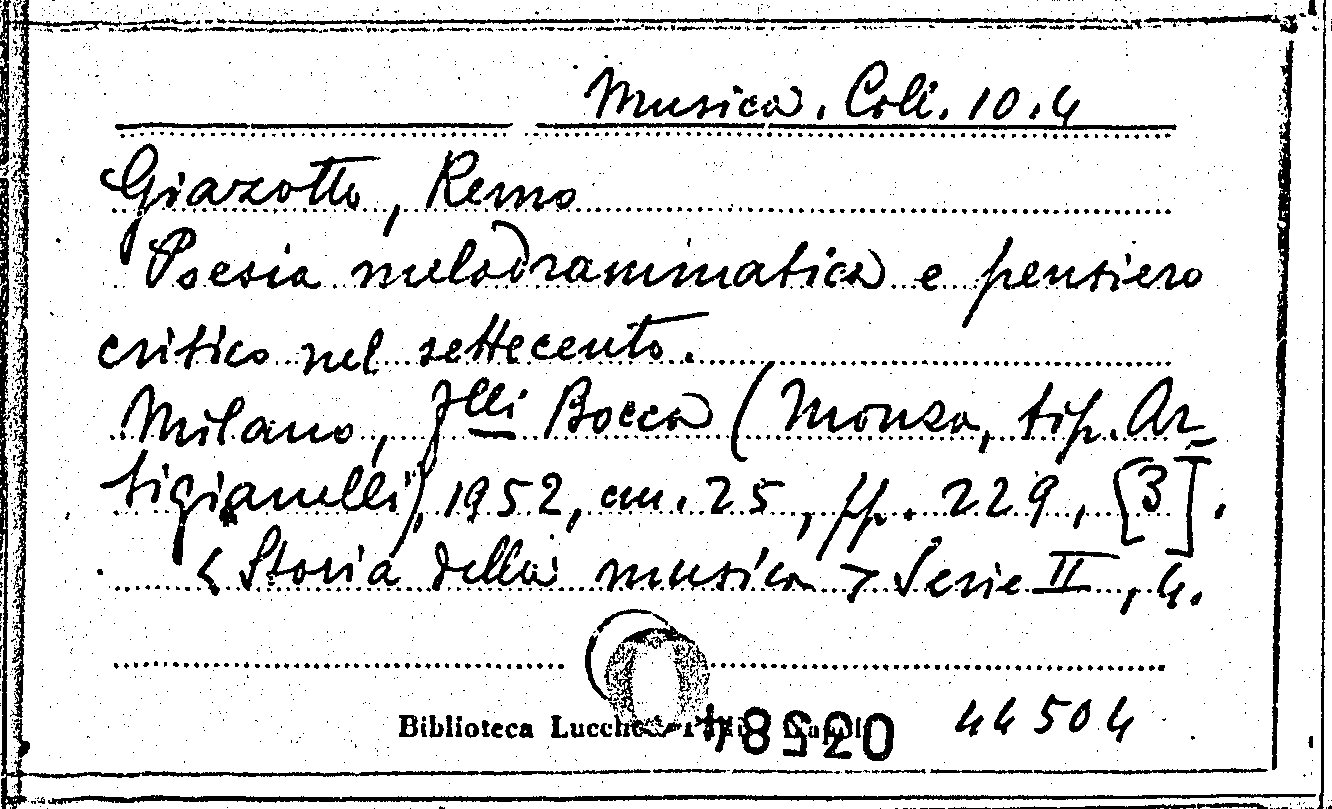 Musica. Coll. 10.4
Giazotto, Remo
Poesia melodrammatica e pensiero
critico nel settecento.
Milano, f.lli Bocca (Monza, tip. Ar-
tigianelli), 1952, cm. 25, pp. 229, [3].
< Storia della musica > Serie II, 4.
Biblioteca
44504